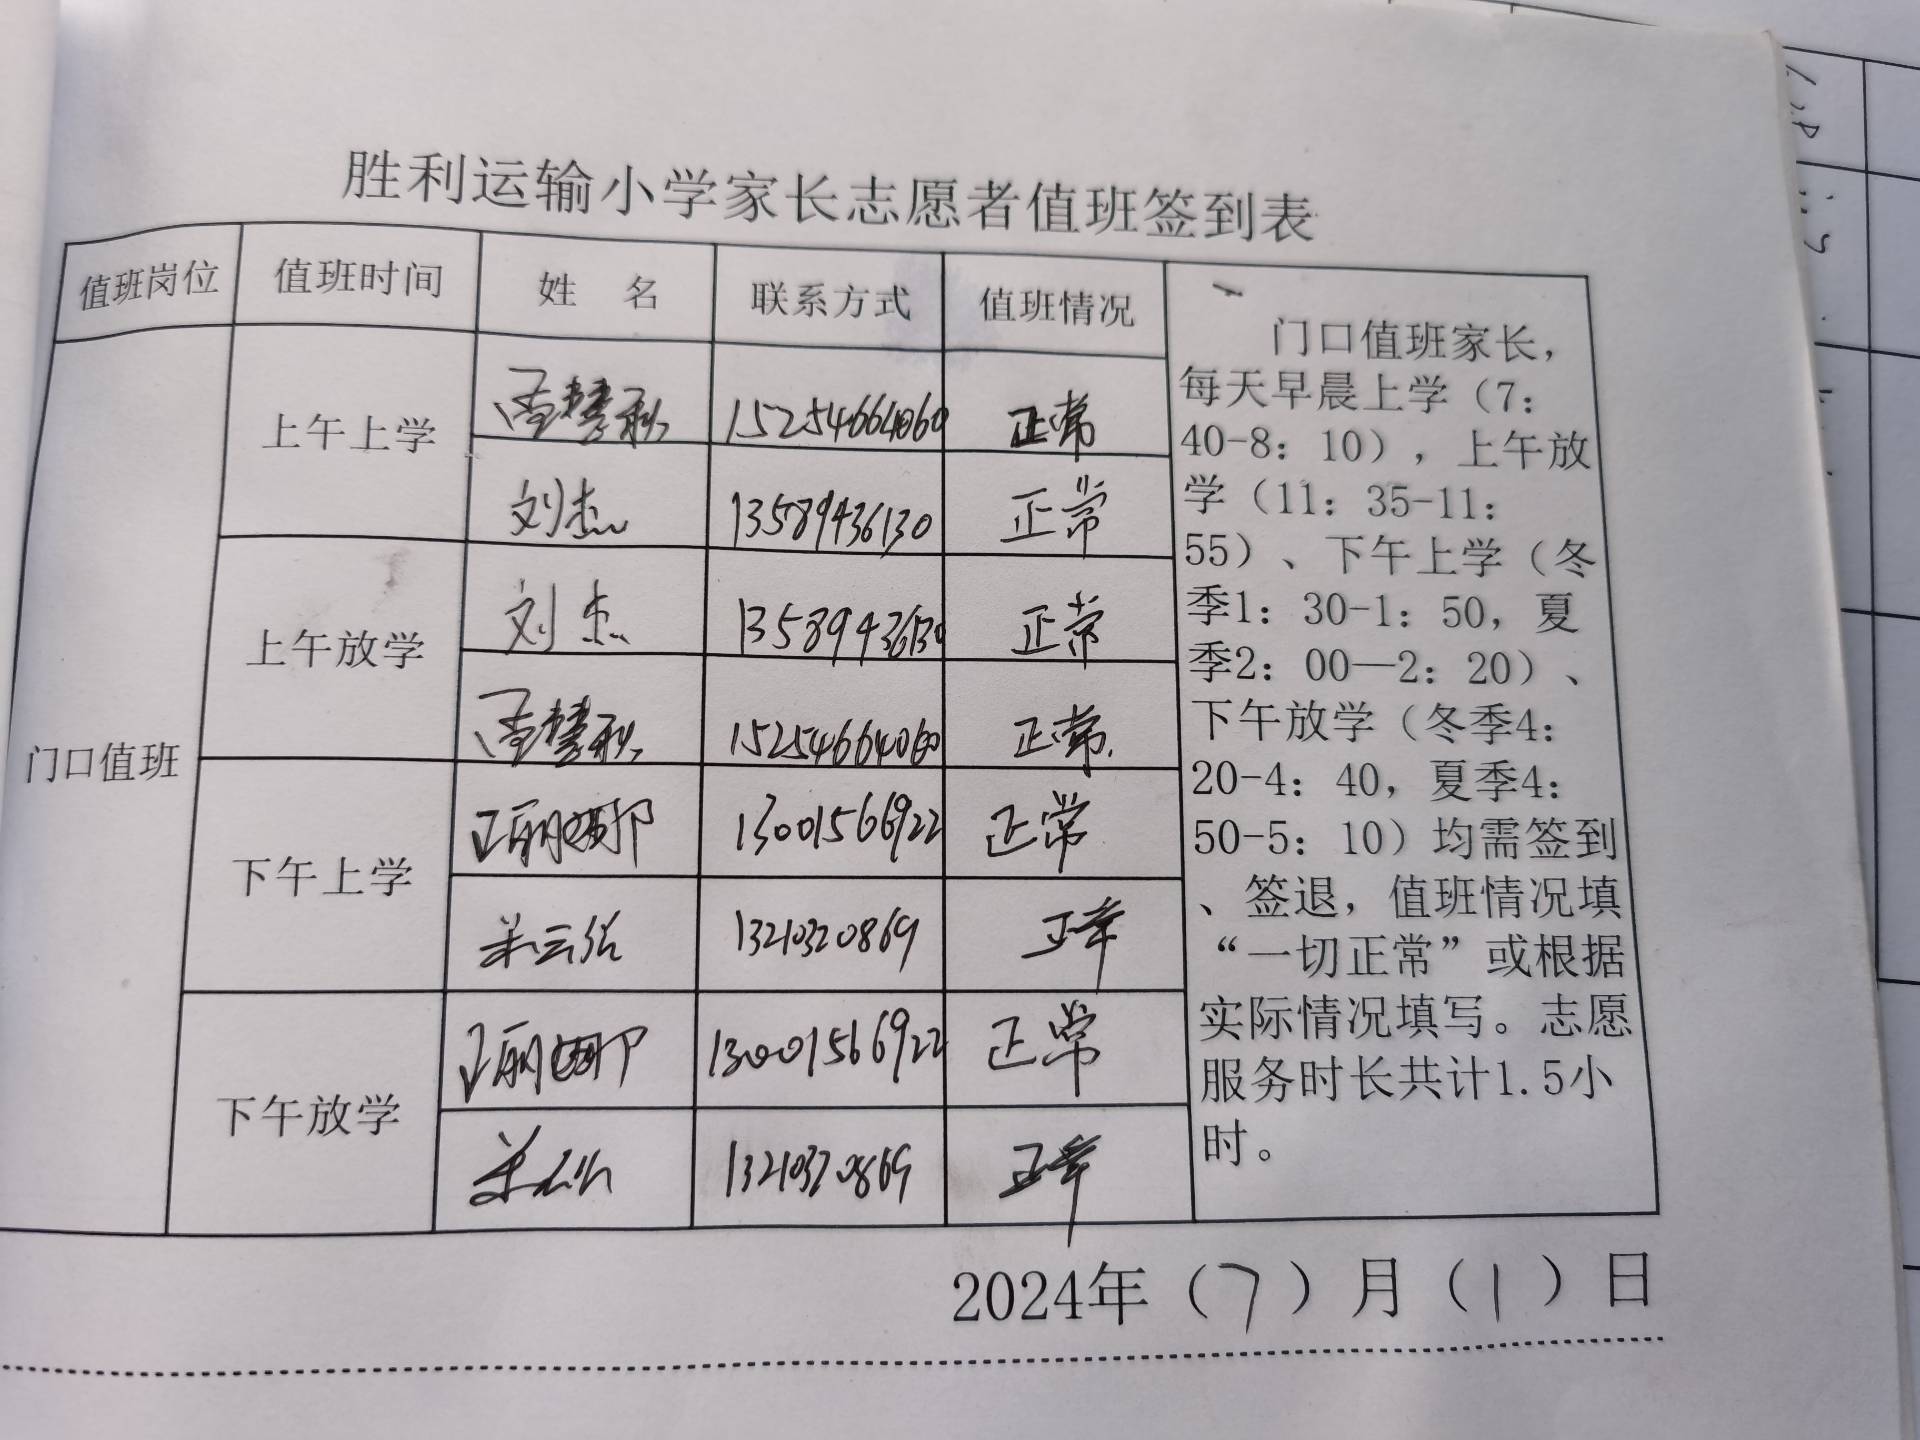 胜利运输小学家长志愿者值班签到表
值班岗位 值班时间 姓 名 联系方式 值班情况
门口值班
上午上学
15254664060 正常
刘杰 13589436130 正常
上午放学
刘杰 13589436130 正常
15254664060 正常.
下午上学
13001566922 正常
13210320869 正常
下午放学
13001566922 正常
13210320869 正常
门口值班家长，
每天早晨上学（7：
40-8：10），上午放
学（11：35-11：
55）、下午上学（冬
季1：30-1：50，夏
季2：00—2：20）、
下午放学（冬季4：
20-4：40，夏季4：
50-5：10）均需签到
、签退，值班情况填
“一切正常”或根据
实际情况填写。志愿
服务时长共计1.5小
时。
2024年（7）月（1）日